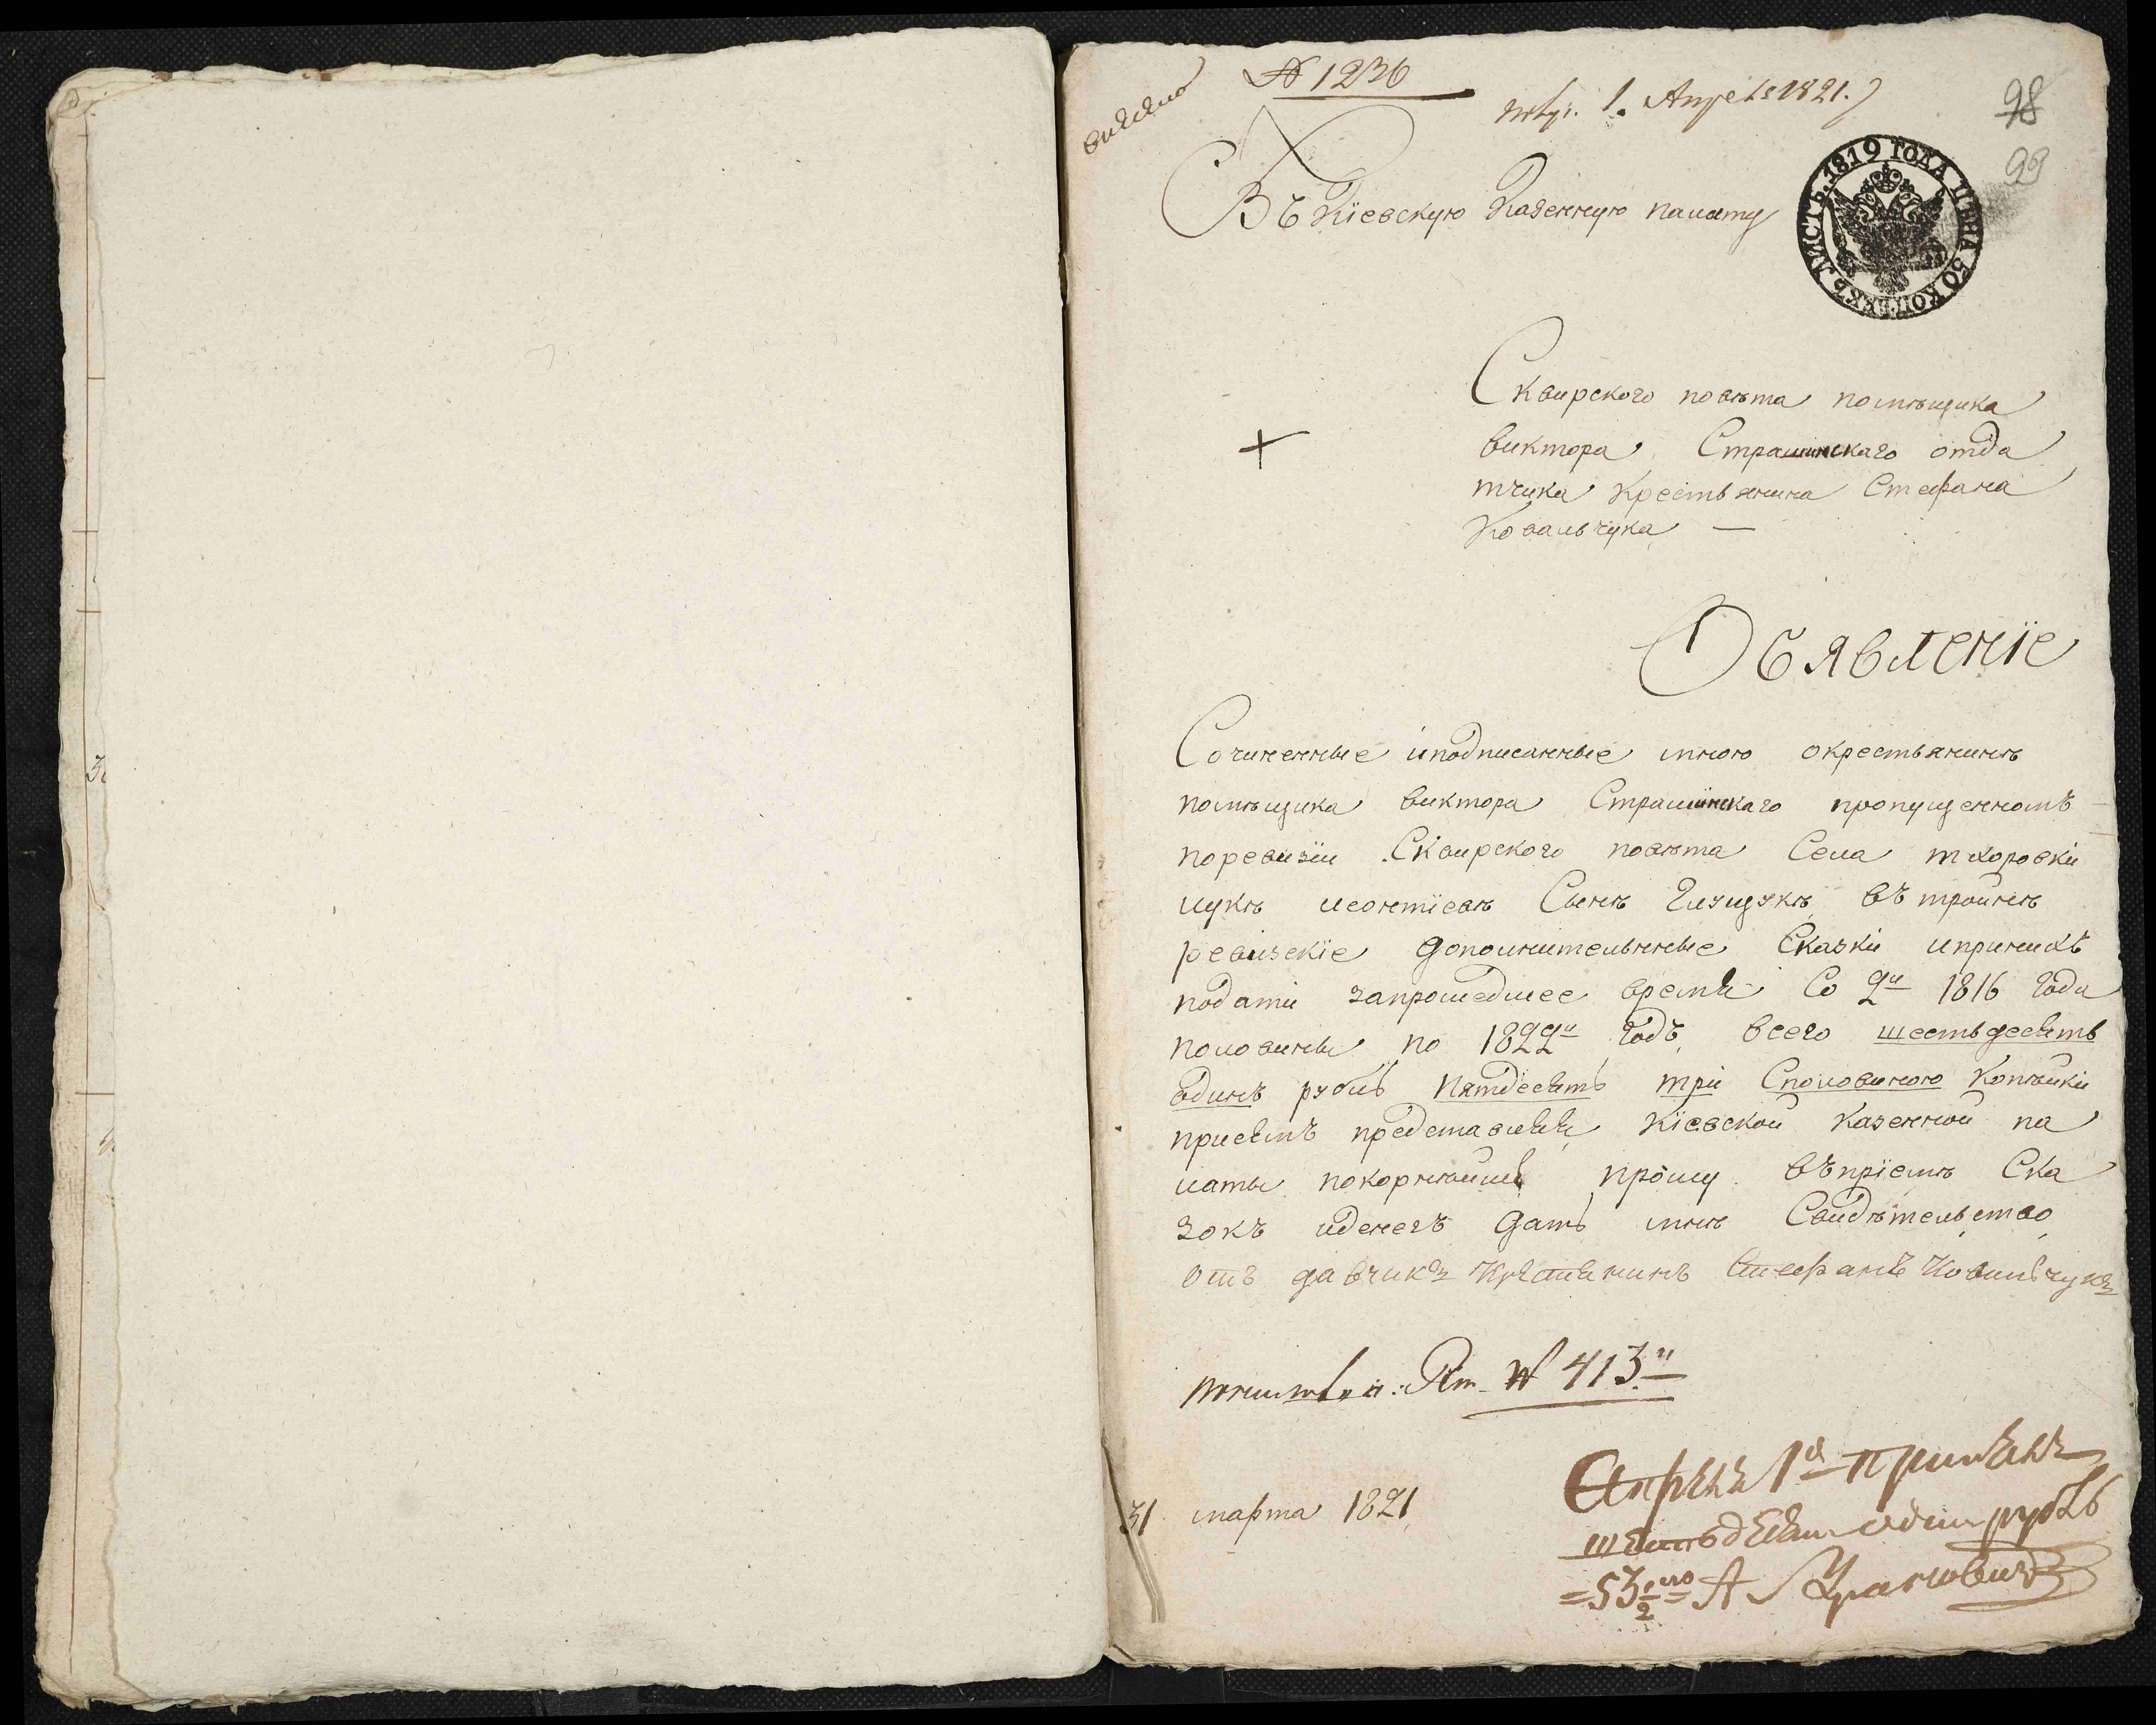 № 1236
1. Апреля 1821.
98
99
1819 ГОДА ЦѢНА 50 КОПѢЕКЪ ЛИСТЪ.
Въ Кїевскую Казенную палату
Сквирского повѣта помѣщика
виктора Страшинскаго отда
тчика Крестьянина Стефана
Ковальчука —
Обявленїе
Сочиненные иподписанные мною окрестьянинѣ
помѣщика виктора Страшинскаго пропущенномъ
поревизїи Сквирского повѣта Села тхоровки
лукѣ леонтїевѣ Сынѣ втройнѣ
ревизскїе дополнительные Сказки инринихъ
подати запрошедшее время Со 2й 1816 года
половины по 1822й годъ, всего шестьдесятъ
одинъ рубль пятдесятъ три Споловиною Копѣйки
присемъ представляя Кїевской Казенной па
латы покорнѣйше прошу въпрїемѣ Ска
зокъ иденегъ дать мнѣ Свидѣтельство
отъ давчика Крестянинъ Стефанъ Ковальчукъ
№ 413й
31 марта 1821
Апреля 1й принялъ
шестьдесят один рубль
=53 1/2= А